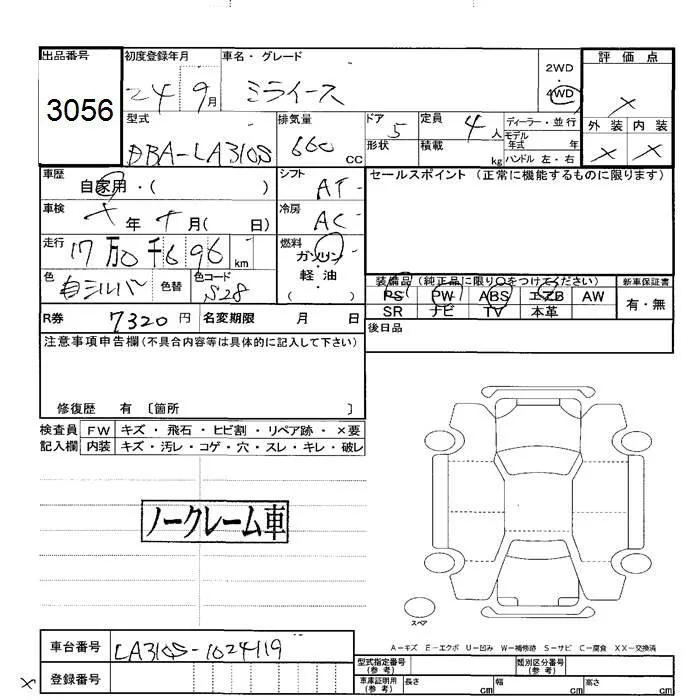 出品番号 初度登録年月 車名・グレード 評価点
3056 24 9月 ミライース 2WD 4WD ×
型式 排気量 ドア 定員 ディーラー・並行 外装 内装
DBA-LA310S 660cc 5 4人 モデル年式 年 × ×
形状 積載 kg ハンドル 左・右
車歴 自家用・( ) シフト AT セールスポイント (正常に機能するものに限ります)
車検 年 月( 日) 冷房 AC
走行 17万0千696km 燃料 ガソリン・軽油・( )
色 色替 色コード S28 装備品 (純正品に限り○をつけてください) 新車保証書
自シルバー PS PW ABS エアB AW 有・無
SR ナビ TV 本革
R券 7320円 名変期限 月 日 後日品
注意事項申告欄(不具合内容等は具体的に記入して下さい)
修復歴 有 〔箇所 〕
検査員 FW キズ・飛石・ヒビ割・リペア跡・×要
記入欄 内装 キズ・汚レ・コゲ・穴・スレ・キレ・破レ
ノークレーム車
スペア
A-キズ E-エクボ U-凹み W-補修跡 S-サビ C-腐食 XX-交換済
車台番号 LA310S-1024119
登録番号
型式指定番号(参考) 類別区分番号(参考)
車庫証明用(参考) 長さ cm 幅 cm 高さ cm
×